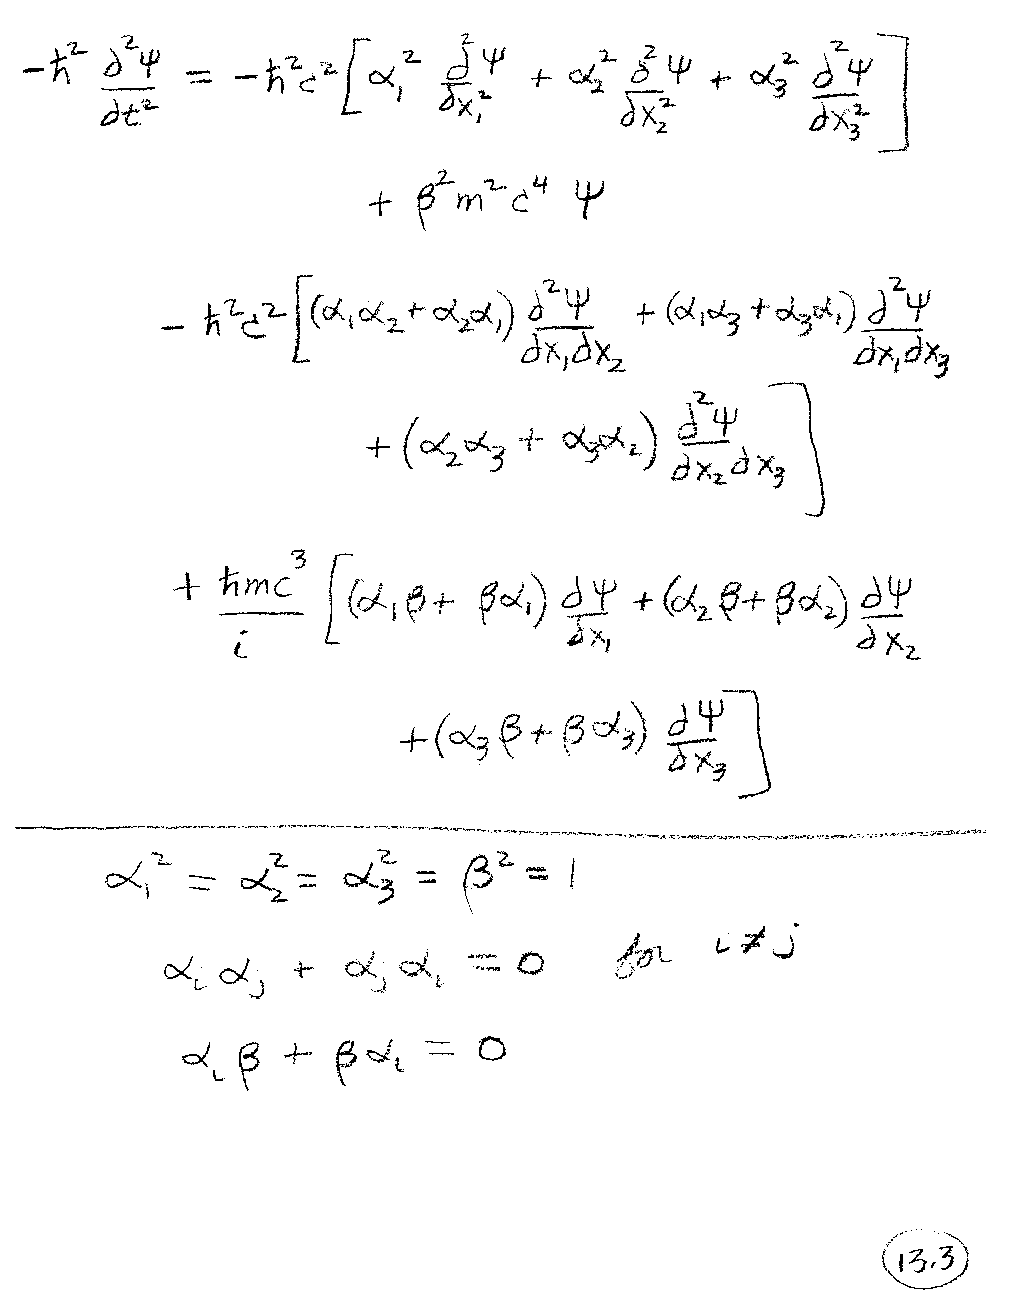 -ħ² ∂²Ψ/∂t² = -ħ²c² [ α₁² ∂²Ψ/∂x₁² + α₂² ∂²Ψ/∂x₂² + α₃² ∂²Ψ/∂x₃² ]
+ β²m²c⁴ Ψ
- ħ²c² [ (α₁α₂ + α₂α₁) ∂²Ψ/∂x₁∂x₂ + (α₁α₃ + α₃α₁) ∂²Ψ/∂x₁∂x₃
+ (α₂α₃ + α₃α₂) ∂²Ψ/∂x₂∂x₃ ]
+ ħmc³/i [ (α₁β + βα₁) ∂Ψ/∂x₁ + (α₂β + βα₂) ∂Ψ/∂x₂
+ (α₃β + βα₃) ∂Ψ/∂x₃ ]
α₁² = α₂² = α₃² = β² = 1
αᵢαⱼ + αⱼαᵢ = 0 for i ≠ j
αᵢβ + βαᵢ = 0
13.3